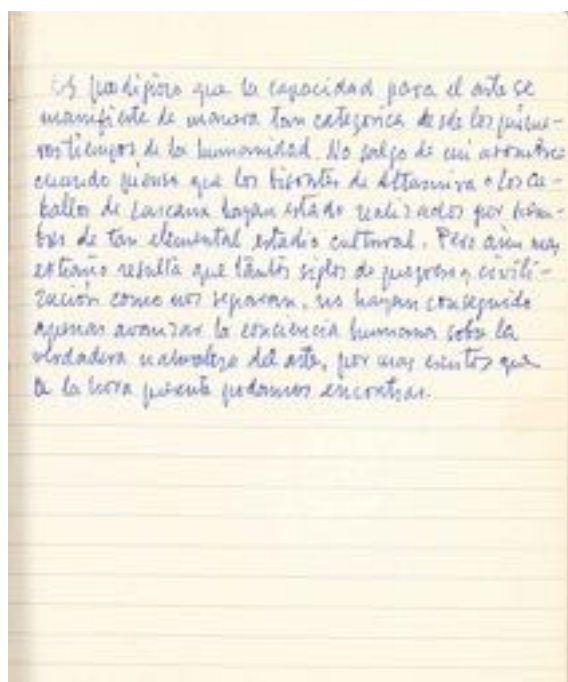 Es prodigioso que la capacidad para el arte se
manifieste de manera tan categórica desde los prime-
ros tiempos de la humanidad. No salgo de mi asombro
cuando pienso que los bisontes de Altamira o los ca-
ballos de Lascaux hayan estado realizados por hom-
bres de tan elemental estadio cultural. Pero aún mas
extraño resulta que tantos siglos de progreso y civili-
zación como nos separan, no hayan conseguido
apenas avanzar la conciencia humana sobre la
verdadera naturaleza del arte, por mas escritos que
a la hora presente podamos encontrar.